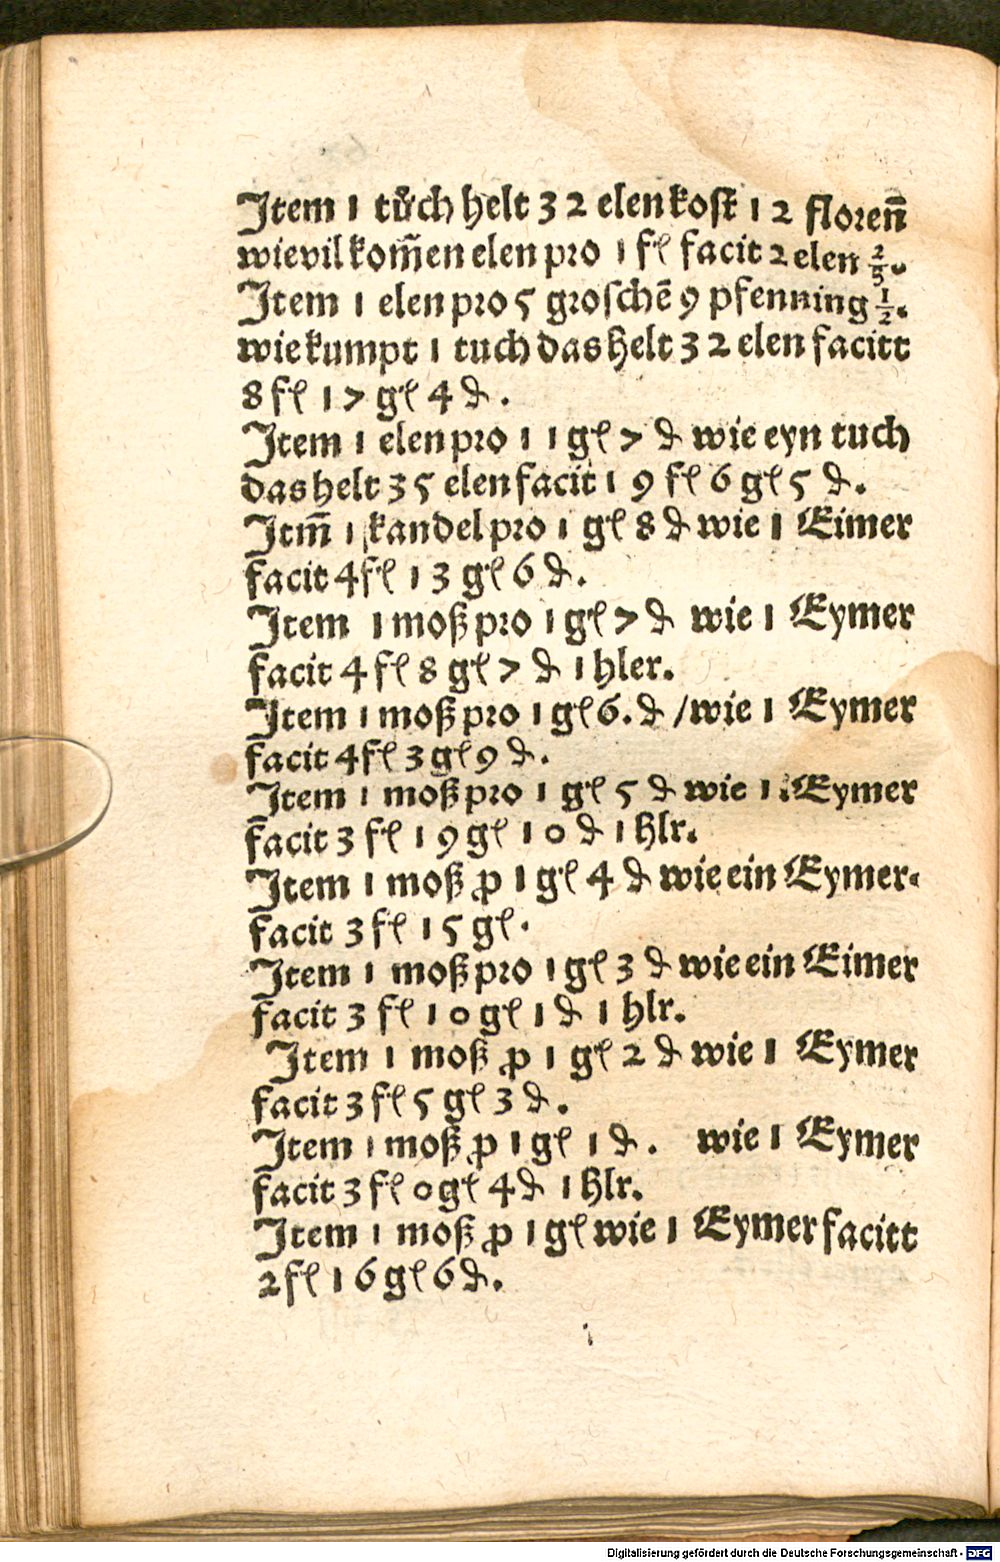 Item 1 tuͦch helt 32 elen koſt 12 floren̄
wievil kom̄en elen pro 1 fl facit 2 elen 2/5.
Item 1 elen pro 5 groſchē 9 pfenning 1/2.
wie kumpt 1 tuch das helt 32 elen facitt
8 fl 17 gl 4 ₰.
Item 1 elen pro 11 gl 7 ₰ wie eyn tuch
das helt 35 elen facit 19 fl 6 gl 5 ₰.
Itm̄ 1 kandel pro 1 gl 8 ₰ wie 1 Eimer
facit 4 fl 13 gl 6 ₰.
Item 1 moß pro 1 gl 7 ₰ wie 1 Eymer
facit 4 fl 8 gl 7 ₰ 1 hler.
Item 1 moß pro 1 gl 6. ₰ /wie 1 Eymer
facit 4 fl 3 gl 9 ₰.
Item 1 moß pro 1 gl 5 ₰ wie 1. Eymer
facit 3 fl 19 gl 10 ₰ 1 hlr.
Item 1 moß ꝓ 1 gl 4 ₰ wie ein Eymer.
facit 3 fl 15 gl.
Item 1 moß pro 1 gl 3 ₰ wie ein Eimer
facit 3 fl 10 gl 1 ₰ 1 hlr.
Item 1 moß ꝓ 1 gl 2 ₰ wie 1 Eymer
facit 3 fl 5 gl 3 ₰.
Item 1 moß ꝓ 1 gl 1 ₰. wie 1 Eymer
facit 3 fl 0 gl 4 ₰ 1 hlr.
Item 1 moß ꝓ 1 gl wie 1 Eymer facitt
2 fl 16 gl 6 ₰.
Digitalisierung gefördert durch die Deutsche Forschungsgemeinschaft - DFG